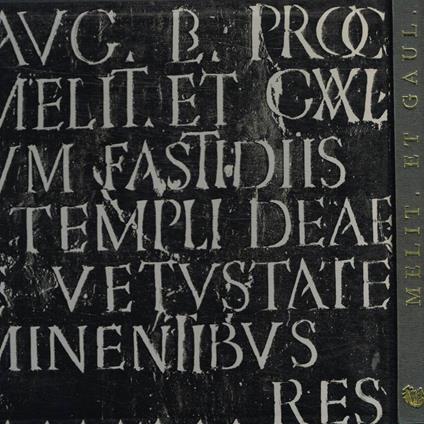 AVG. B. PROC
MELIT. ET GAVL
VM FASTIDIIS
TEMPLI DEAE
S VETVSTATE
MINENTIBVS
RES
MELIT. ET GAUL.